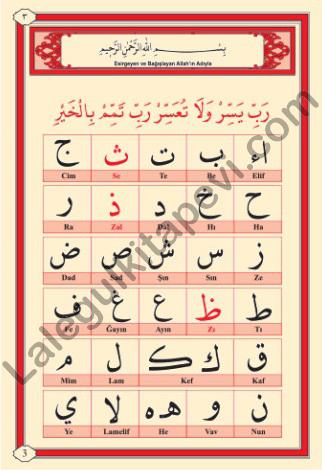 ٣
بِسْمِ اللهِ الرَّحْمٰنِ الرَّحِيمِ
Esirgeyen ve Bağışlayan Allah'ın Adıyla
رَبِّ يَسِّرْ وَلَا تُعَسِّرْ رَبِّ تَمِّمْ بِالْخَيْرِ
اء ب ت ث ج
Elif Be Te Se Cim
ح خ د ذ ر
Ha Hı Dal Zal Ra
ز س ش ص ض
Ze Sin Şın Sad Dad
ط ظ ع غ ف
Tı Zı Ayın Ğayın Fe
ق ك ک ل م
Kaf Kef Lam Mim
ن و ه ه لا ي
Nun Vav He Lamelif Ye
3
Lalegulkitapevi.com